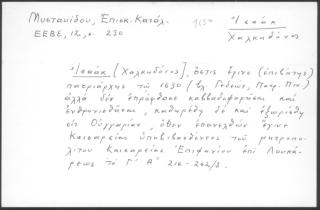 Μυστακίδου, Επισκ. Κατάλ.
ΕΕΒΣ, 12, σ. 230
1630
Ἰσαάκ
Χαλκηδόνος
Ἰσαάκ [Χαλκηδόνος], ὅστις ἔγινε (ἐπιβάτης)
πατριάρχης τῷ 1630 (βλ. Γεδεών, Πατρ. Πίν.)
ἀλλὰ δὲν ἐπρόφθασε καὶ
ἐνθρονισθῶσι, καθῃρέθη δὲ καὶ ἐξωρίσθη
εἰς Οὑγγαρίαν, ὅθεν ἐπανελθὼν ἔγινε
Καισαρείας ὑποβιβασθέντος τοῦ μητροπο-
λίτου Καισαρείας Ἐπιφανίου ἐπὶ Λουκά-
ρεως τὸ Γ΄ Α΄ 216-242/3.